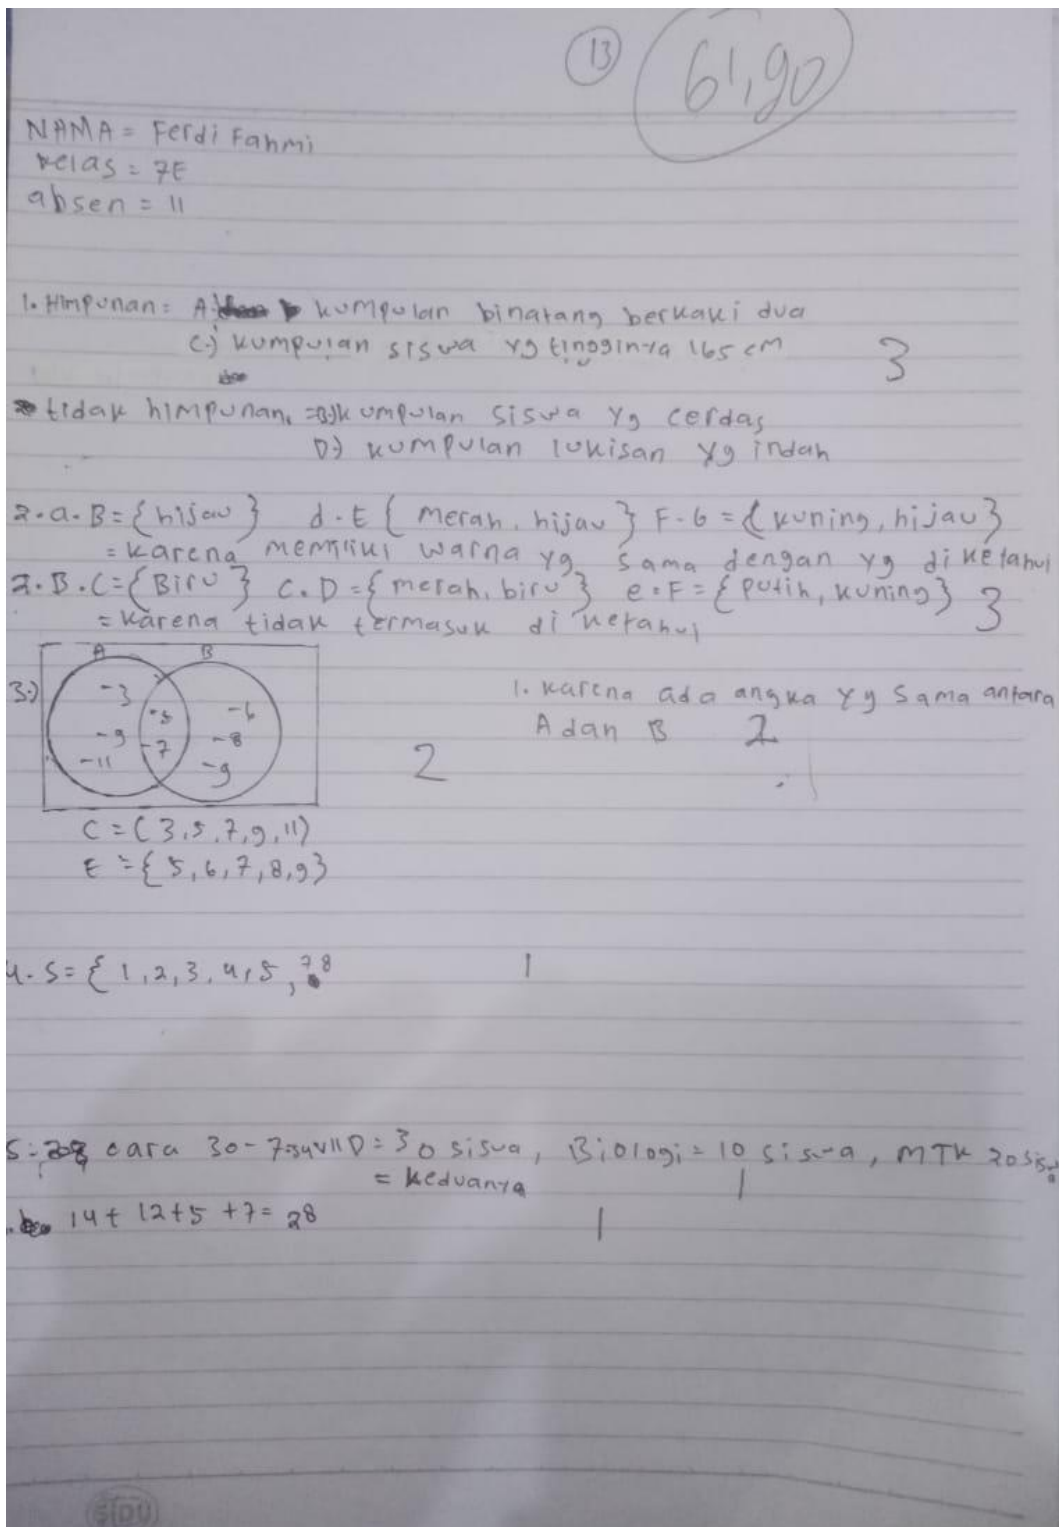 13
61,90
NAMA = Ferdi Fahmi
kelas = 7E
absen = 11
1. Himpunan = A. kumpulan binatang berkaki dua
C.) kumpulan siswa yg tingginya 165 cm
3
tidak himpunan, = B.) kumpulan siswa yg cerdas
D.) kumpulan lukisan yg indah
2. a. B = {hijau} d. E {merah, hijau} F. G = {kuning, hijau}
= karena memiliki warna yg sama dengan yg diketahui
2. B. C = {Biru} C. D = {merah, biru} e. F = {putih, kuning} 3
= karena tidak termasuk diketahui
A B
3.) -3 -5 -6
-9 -7 -8
-11 -9
1. karena ada angka yg sama antara
A dan B 2
2
C = (3,5,7,9,11)
E = {5,6,7,8,9}
4. S = {1,2,3,4,5, 7 8
1
cara 30 - D = 30 siswa, Biologi = 10 siswa, MTK 20 siswa
= keduanya 1
14 + 12 + 5 + 7 = 28
1
SIDU